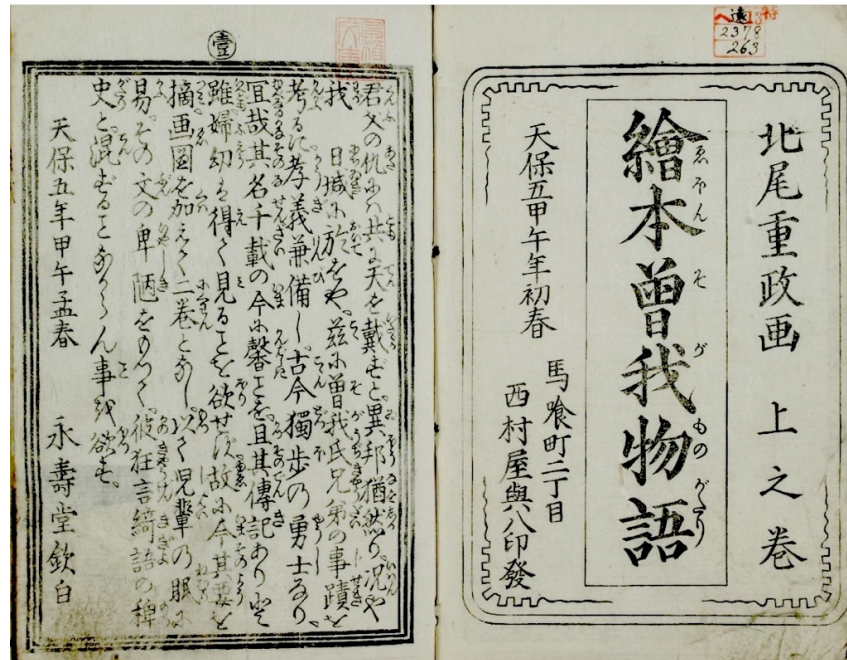 ヘ遠13特
2378
263
北尾重政画　上之巻
繪本曽我物語
ゑほんそがものがたり
馬喰町二丁目
西村屋與八印發
天保五甲午年初春
壹
君父の仇にハ共に天を戴ずと異邦猶然り况や
我　日域に於をや茲に曽我氏兄弟の事蹟を
考るに孝義兼備し古今獨歩の勇士なり
宜哉其名千載の今に馨ことを且其傳記ありと
雖婦幼は得て見ることを欲せず故に今其要を
摘画圖を加えて二卷となし以て児輩の眼に
易その文の卑陋をもつて彼狂言綺語の稗
史と混ずることなからん事を欲す
天保五年甲午孟春　永壽堂欽白